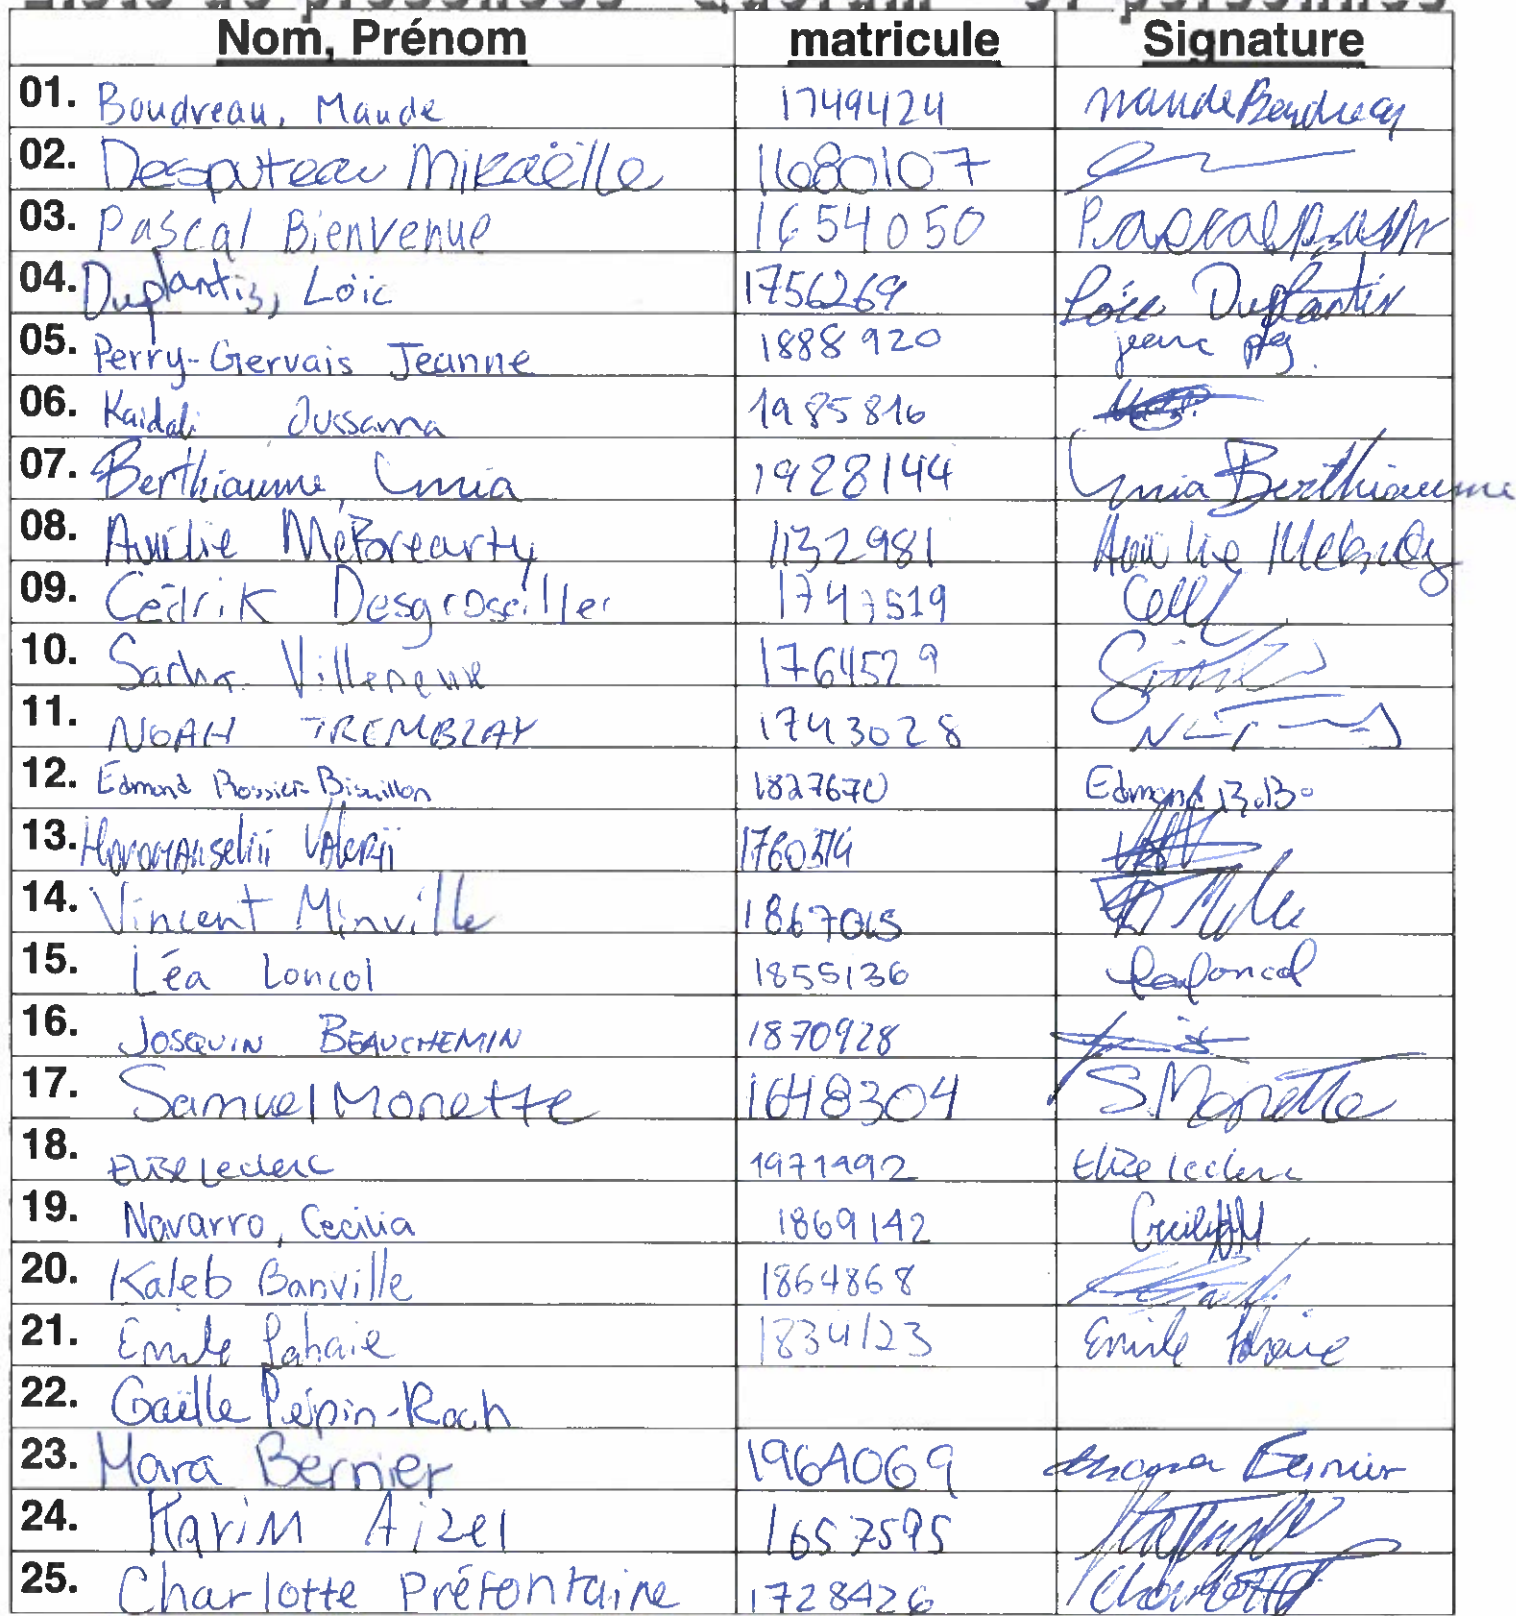 Nom, Prénom matricule Signature
01. Boudreau, Maude 1749424 Maude Boudreau
02. Desputeau Mikaëlle 1680107
03. Pascal Bienvenue 1654050 Pascal
04. Duplantis, Loïc 1756269 Loïc Duplantis
05. Perry-Gervais Jeanne 1888920 jeanne pg.
06. Kaidali Oussama 1985816
07. Berthiaume, 1928144 Berthiaume
08. Aurélie McBrearty 1132981 Aurélie McBrearty
09. Cédrik Desgroseiller 1747519
10. Sacha Villeneuve 1764529
11. NOAH TREMBLAY 1743028
12. Edmond Rossier-Bisaillon 1827670 Edmond B.B.
13. Valerii
14. Vincent Minville
15. Léa Loncol 1855136 Lea Loncol
16. JOSQUIN BEAUCHEMIN 1870928
17. Samuel Monette 1648304 S. Monette
18. Elise Leclerc 1971992 Elise Leclerc
19. Navarro, Cecilia 1869142
20. Kaleb Banville 1864868
21. Emile Lahaie 1834123 Emile Lahaie
22. Gaëlle Pépin-Roch
23. Mara Bernier 1964069 Mara Bernier
24. Karim Aizel 1657595
25. Charlotte Préfontaine 1728426 Charlotte